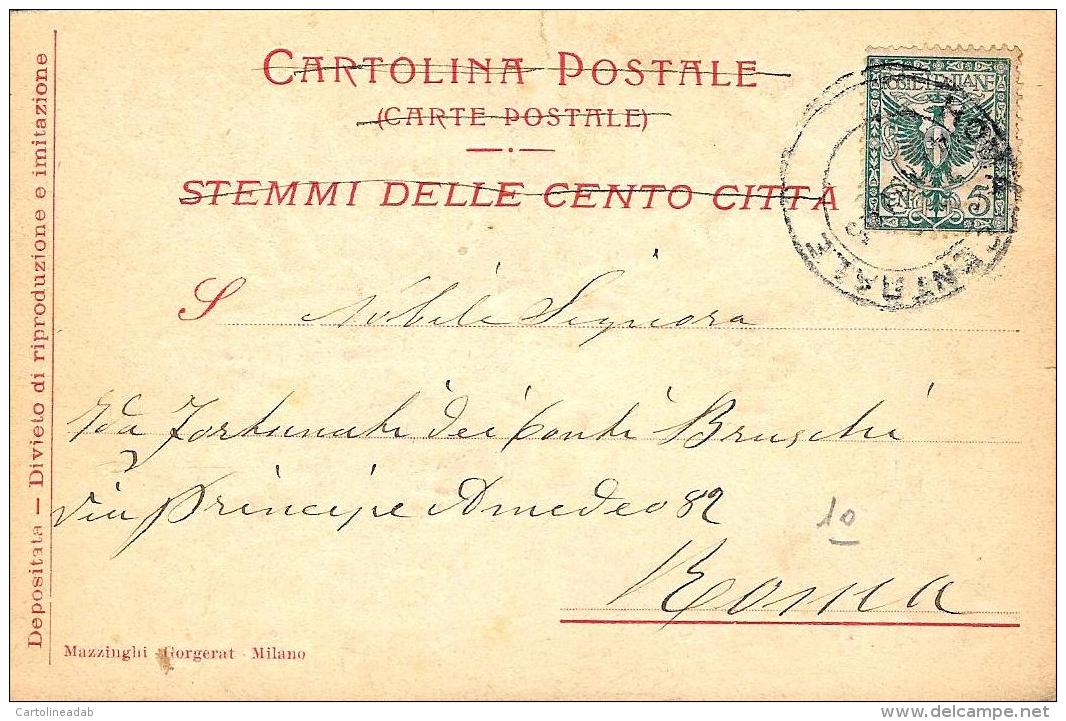 CARTOLINA POSTALE
(CARTE POSTALE)
STEMMI DELLE CENTO CITTA
POSTE ITALIANE
5
ROMA
CENTRALE
S Nobile Signora
Ida Fortunati dei Conti Bruschi
via Principe Amedeo 82
10
Roma
Depositata — Divieto di riproduzione e imitazione
Mazzinghi Gorgerat - Milano
Cartolineadab
delcampe.net